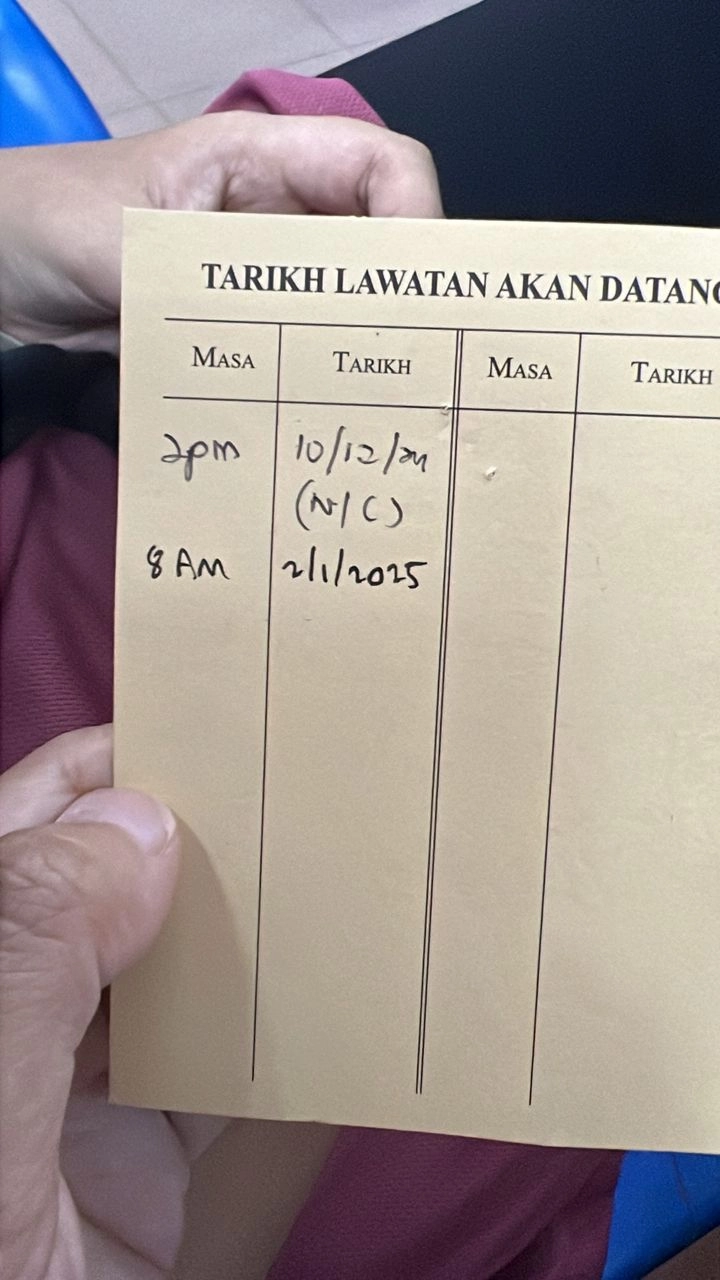 TARIKH LAWATAN AKAN DATANG
MASA TARIKH MASA TARIKH
2pm 10/12/24
(N/C)
8 AM 2/1/2025